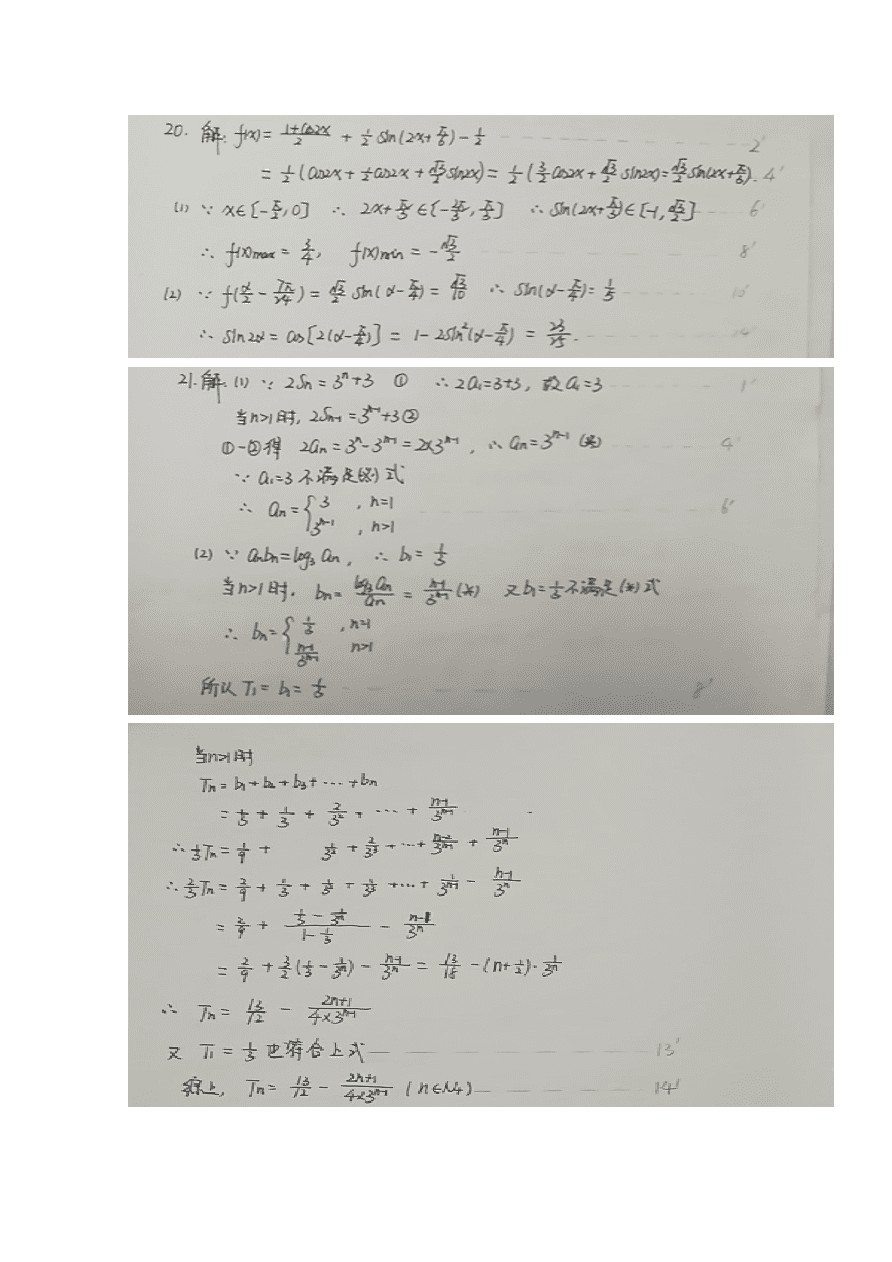 20. 解: f(x) = (1+cos2x)/2 + 1/2 sin(2x+π/6) - 1/2 2'
= 1/2 (cos2x + 1/2 cos2x + √3/2 sin2x) = 1/2 (3/2 cos2x + √3/2 sin2x) = √3/2 sin(2x+π/3). 4'
(1) ∵ x∈[-π/2, 0] ∴ 2x+π/3 ∈[-2π/3, π/3] ∴ sin(2x+π/3)∈[-1, √3/2] 6'
∴ f(x)max = 3/4, f(x)min = -√3/2 8'
(2) ∵ f(α/2 - 7π/24) = √3/2 sin(α-π/4) = √3/10 ∴ sin(α-π/4) = 1/5 10'
∴ sin2α = cos[2(α-π/4)] = 1-2sin²(α-π/4) = 23/25. 14'
21.解: (1) ∵ 2Sn = 3^n+3 ① ∴ 2a₁=3+3, 故a₁=3 1'
当n>1时, 2Sn-1 = 3^(n-1)+3 ②
①-②得 2an = 3^n-3^(n-1) = 2×3^(n-1), ∴ an=3^(n-1) (※) 4'
∵ a₁=3不满足(※)式
∴ an = { 3 , n=1
3^(n-1) , n>1 6'
(2) ∵ anbn=log₃an, ∴ b₁ = 1/3
当n>1时, bn = log₃an/an = (n-1)/3^(n-1) (*) 又b₁=1/3不满足(*)式
∴ bn = { 1/3 , n=1
(n-1)/3^(n-1) n>1
所以 T₁ = b₁ = 1/3 8'
当n>1时
Tn = b₁+b₂+b₃+⋯+bn
= 1/3 + 1/3 + 2/3² + ⋯ + (n-1)/3^(n-1)
∴ 1/3 Tn = 1/9 + 1/3² + 2/3³ +⋯+ (n-2)/3^(n-1) + (n-1)/3^n
∴ 2/3 Tn = 2/9 + 1/3 + 1/3² + 1/3³ +⋯+ 1/3^(n-1) - (n-1)/3^n
= 2/9 + (1/3 - 1/3^n)/(1-1/3) - (n-1)/3^n
= 2/9 + 3/2(1/3 - 1/3^n) - (n-1)/3^n = 13/18 - (n+1/2)·1/3^n
∴ Tn = 13/12 - (2n+1)/(4×3^(n-1))
又 T₁ = 1/3 也符合上式 13'
综上, Tn = 13/12 - (2n+1)/(4×3^(n-1)) (n∈N+) 14'